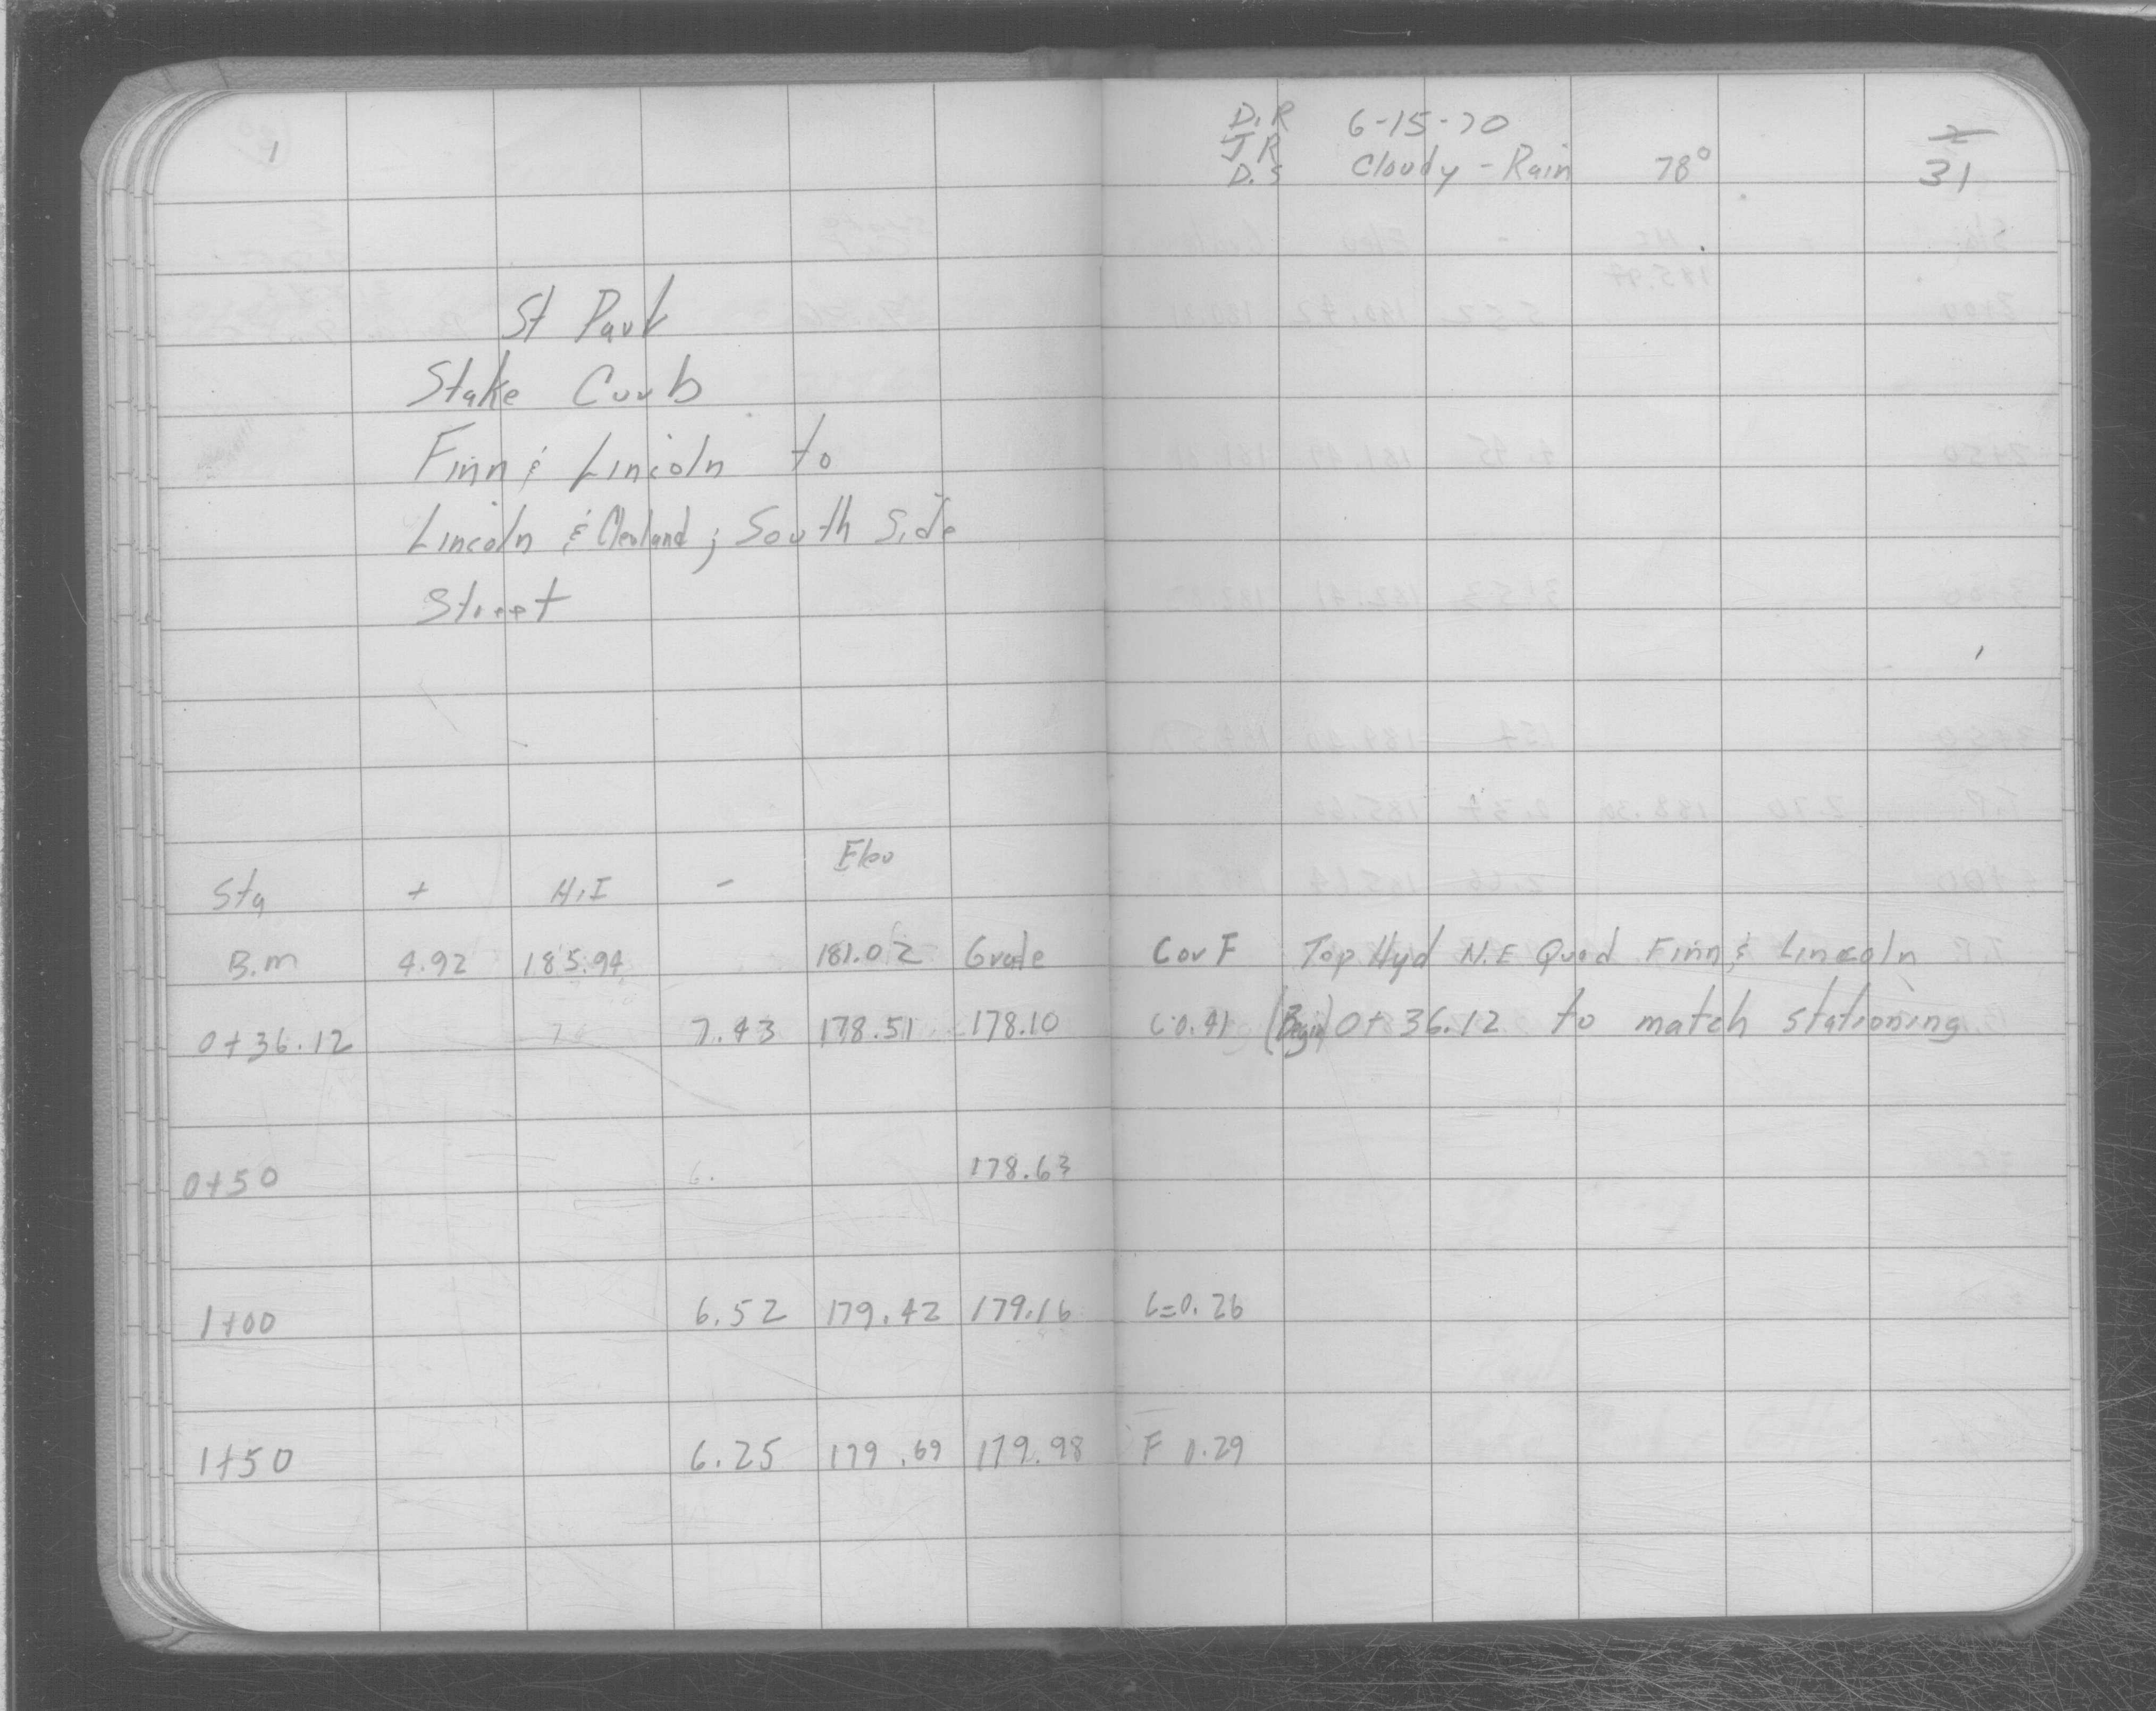 1
D.R 6-15-70
J R
D.S Cloudy - Rain 78°
2
31
St Paul
Stake Curb
Finn & Lincoln to
Lincoln & Cleveland ; South Side
Street
Sta + H.I - Elev
B.m 4.92 185.94 181.02 Grade C or F Top Hyd N.E Quad Finn & Lincoln
0+36.12 7.43 178.51 178.10 C 0.41 (Begin) 0+36.12 to match stationing
0+50 6. 178.63
1+00 6.52 179.42 179.16 C=0.26
1+50 6.25 179.69 179.98 F 0.29